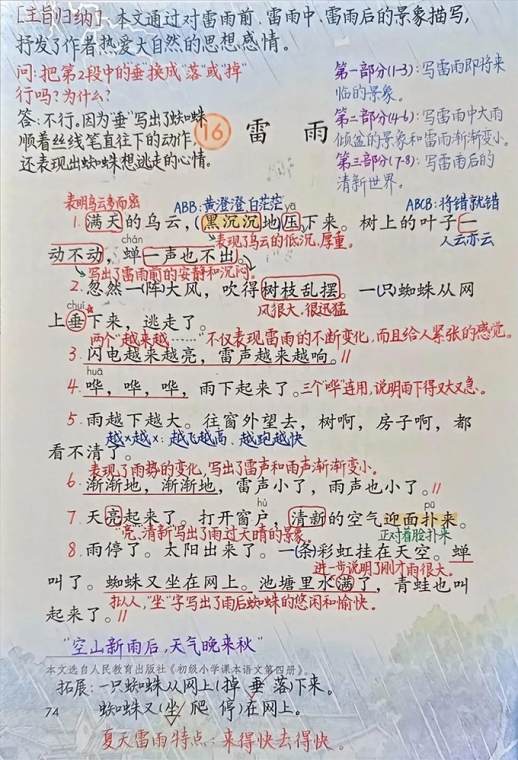 [主旨归纳] 本文通过对雷雨前、雷雨中、雷雨后的景象描写,
抒发了作者热爱大自然的思想感情。
问:把第2段中的"垂"换成"落"或"掉"
行吗?为什么?
答:不行。因为"垂"写出了蜘蛛
顺着丝线笔直往下的动作,
还表现出蜘蛛想逃走的心情。
第一部分(1-3):写雷雨即将来
临的景象。
第二部分(4-6):写雷雨中大雨
倾盆的景象和雷雨渐渐变小。
第三部分(7-8):写雷雨后的
清新世界。
16 雷雨
表明乌云多而密
ABB:黄澄澄 白茫茫
yā
ABCB:将错就错
人云亦云
1.满天的乌云,(黑沉沉地)压下来。树上的叶子一
表现了乌云的低沉、厚重。
chán
动不动,蝉一声也不出。
写出了雷雨前的安静和沉闷
2.忽然一(阵)大风,吹得树枝乱摆。一(只)蜘蛛从网
风很大、很迅猛
chuí
上垂下来,逃走了。
两个"越来越……"不仅表现雷雨的不断变化,而且给人紧张的感觉。
3.闪电越来越亮,雷声越来越响。//
huā
4.哗,哗,哗,雨下起来了。三个"哗"连用,说明雨下得又大又急。
5.雨越下越大。往窗外望去,树啊,房子啊,都
看不清了。
越×越×:越飞越高、越跑越快
表现了雨势的变化,写出了雷声和雨声渐渐变小。
6.渐渐地,渐渐地,雷声小了,雨声也小了。//
hù
pū
7.天亮起来了。打开窗户,清新的空气迎面扑来。
"亮、清新"写出了雨过天晴的景象。
正对着脸扑来
8.雨停了。太阳出来了。一(条)彩虹挂在天空。蝉
进一步说明了刚才雨很大。
叫了。蜘蛛又坐在网上。池塘里水满了,青蛙也叫
拟人,"坐"字写出了雨后蜘蛛的悠闲和愉快。
起来了。//
"空山新雨后,天气晚来秋"
本文选自人民教育出版社《初级小学课本语文第四册》。
拓展:一只蜘蛛从网上(掉 垂 落)下来。
74
蜘蛛又(坐 爬 停)在网上。
夏天雷雨特点:来得快去得快。